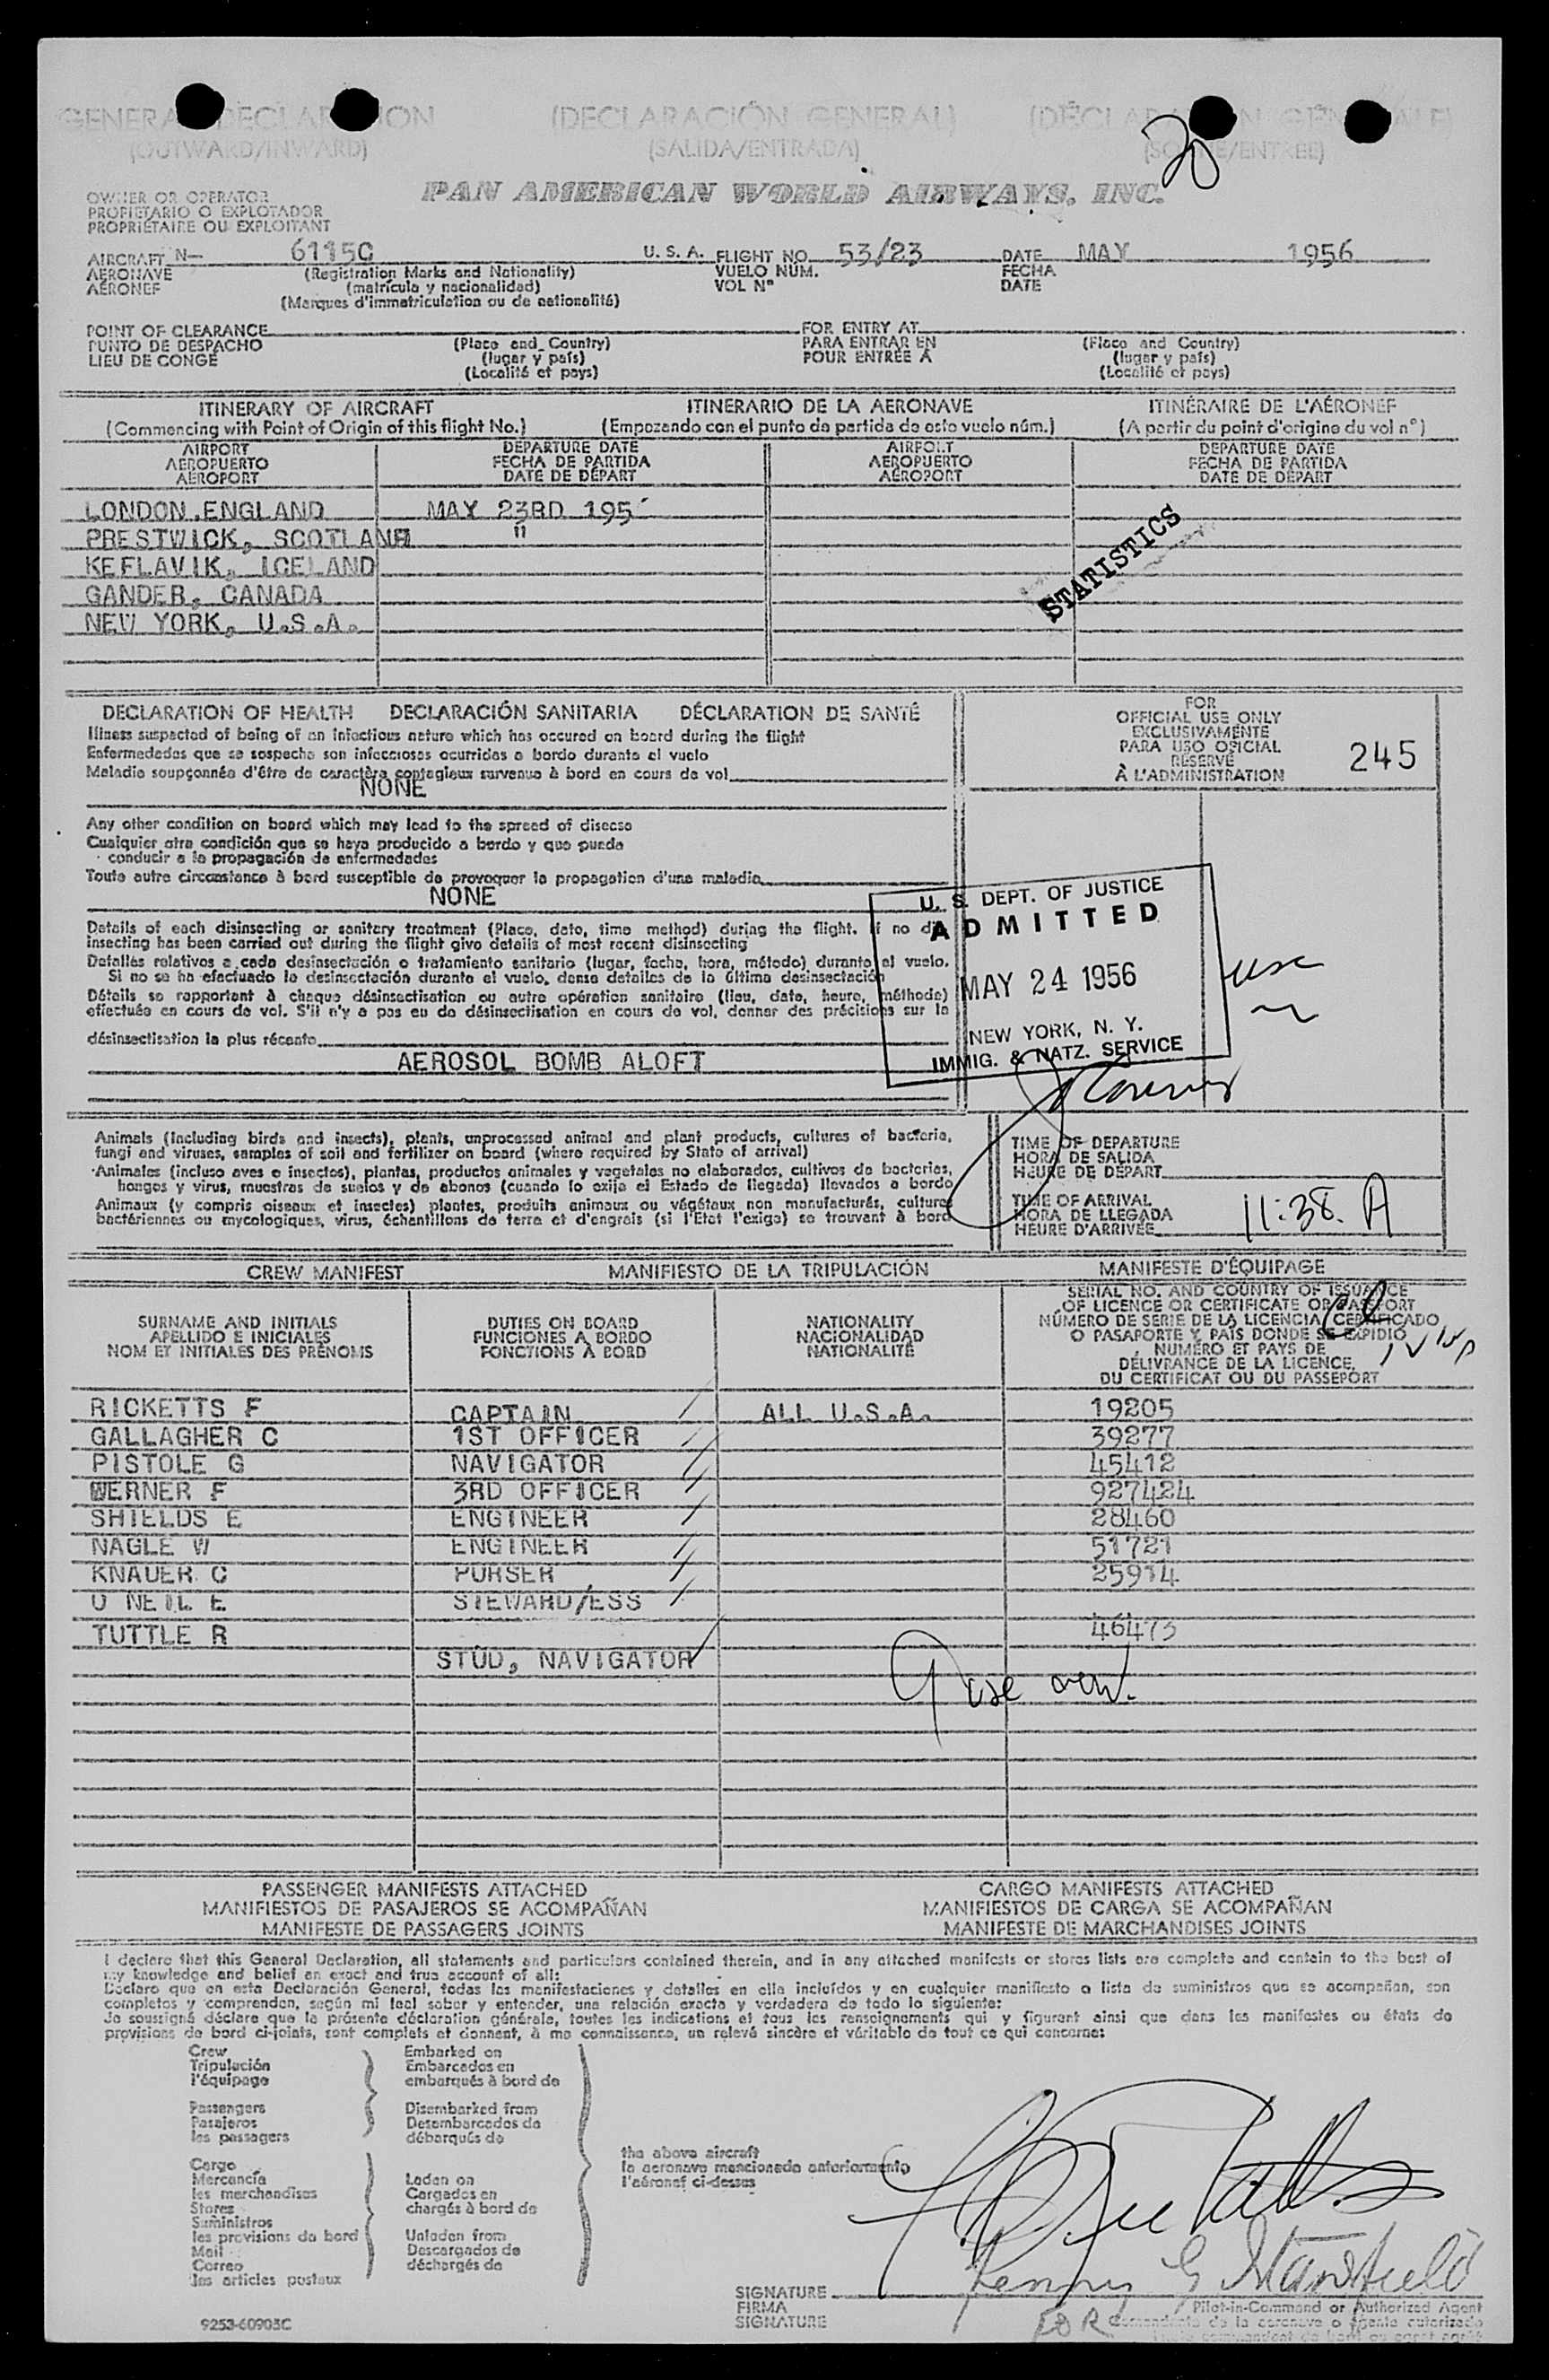 GENERAL DECLARATION (DECLARACIÓN GENERAL) (DÉCLARATION GÉNÉRALE)
(OUTWARD/INWARD) (SALIDA/ENTRADA) (SORTIE/ENTRÉE)
20
PAN AMERICAN WORLD AIRWAYS, INC.
OWNER OR OPERATOR
PROPIETARIO O EXPLOTADOR
PROPRIÉTAIRE OU EXPLOITANT
AIRCRAFT N— 6115C U. S. A. FLIGHT NO. 53/23 DATE MAY 1956
AERONAVE (Registration Marks and Nationality) VUELO NÚM. FECHA
AÉRONEF (matrícula y nacionalidad) VOL Nº DATE
(Marques d'immatriculation ou de nationalité)
POINT OF CLEARANCE FOR ENTRY AT
PUNTO DE DESPACHO (Place and Country) PARA ENTRAR EN (Place and Country)
LIEU DE CONGÉ (lugar y país) POUR ENTRÉE À (lugar y país)
(Localité et pays) (Localité et pays)
ITINERARY OF AIRCRAFT ITINERARIO DE LA AERONAVE ITINÉRAIRE DE L'AÉRONEF
(Commencing with Point of Origin of this flight No.) (Empezando con el punto de partida de este vuelo núm.) (A partir du point d'origine du vol nº)
AIRPORT DEPARTURE DATE AIRPORT DEPARTURE DATE
AEROPUERTO FECHA DE PARTIDA AEROPUERTO FECHA DE PARTIDA
AÉROPORT DATE DE DÉPART AÉROPORT DATE DE DÉPART
LONDON ENGLAND MAY 23RD 195
PRESTWICK, SCOTLAND "
KEFLAVIK, ICELAND
GANDER, CANADA
NEW YORK, U.S.A.
STATISTICS
DECLARATION OF HEALTH DECLARACIÓN SANITARIA DÉCLARATION DE SANTÉ
Illness suspected of being of an infectious nature which has occured on board during the flight
Enfermedades que se sospecha son infecciosas ocurridas a bordo durante el vuelo
Maladie soupçonnée d'être de caractère contagieux survenue à bord en cours de vol
NONE
FOR
OFFICIAL USE ONLY
EXCLUSIVAMENTE
PARA USO OFICIAL
RÉSERVÉ
À L'ADMINISTRATION
245
Any other condition on board which may lead to the spread of disease
Cualquier otra condición que se haya producido a bordo y que pueda
conducir a la propagación de enfermedades
Toute autre circonstance à bord susceptible de provoquer la propagation d'une maladie
NONE
Details of each disinsecting or sanitary treatment (Place, date, time method) during the flight. If no dis-
insecting has been carried out during the flight give details of most recent disinsecting
Detalles relativos a cada desinsectación o tratamiento sanitario (lugar, fecha, hora, método) durante el vuelo.
Si no se ha efectuado la desinsectación durante el vuelo, dense detalles de la última desinsectación
Détails se rapportant à chaque désinsectisation ou autre opération sanitaire (lieu, date, heure, méthode)
effectuée en cours de vol. S'il n'y a pas eu de désinsectisation en cours de vol, donner des précisions sur la
désinsectisation la plus récente
AEROSOL BOMB ALOFT
U. S. DEPT. OF JUSTICE
ADMITTED
MAY 24 1956
NEW YORK, N. Y.
IMMIG. & NATZ. SERVICE
usc
Animals (including birds and insects), plants, unprocessed animal and plant products, cultures of bacteria,
fungi and viruses, samples of soil and fertilizer on board (where required by State of arrival)
Animales (incluso aves e insectos), plantas, productos animales y vegetales no elaborados, cultivos de bacterias,
hongos y virus, muestras de suelos y de abonos (cuando lo exija el Estado de llegada) llevados a bordo
Animaux (y compris oiseaux et insectes) plantes, produits animaux ou végétaux non manufacturés, cultures
bactériennes ou mycologiques, virus, échantillons de terre et d'engrais (si l'Etat l'exige) se trouvant à bord
TIME OF DEPARTURE
HORA DE SALIDA
HEURE DE DÉPART
TIME OF ARRIVAL
HORA DE LLEGADA
HEURE D'ARRIVÉE 11:38. A
CREW MANIFEST MANIFIESTO DE LA TRIPULACIÓN MANIFESTE D'ÉQUIPAGE
SURNAME AND INITIALS
APELLIDO E INICIALES
NOM ET INITIALES DES PRÉNOMS
DUTIES ON BOARD
FUNCIONES A BORDO
FONCTIONS À BORD
NATIONALITY
NACIONALIDAD
NATIONALITÉ
SERIAL NO. AND COUNTRY OF ISSUANCE
OF LICENCE OR CERTIFICATE OR PASSPORT
NÚMERO DE SERIE DE LA LICENCIA, CERTIFICADO
O PASAPORTE Y PAÍS DONDE SE EXPIDIÓ
NUMÉRO ET PAYS DE
DÉLIVRANCE DE LA LICENCE,
DU CERTIFICAT OU DU PASSEPORT
RICKETTS F CAPTAIN ALL U.S.A. 19205
GALLAGHER C 1ST OFFICER 39277
PISTOLE G NAVIGATOR 45412
WERNER F 3RD OFFICER 927424
SHIELDS E ENGINEER 28460
NAGLE W ENGINEER 51721
KNAUER C PURSER 25914
O NEIL E STEWARD/ESS
TUTTLE R 46473
STUD, NAVIGATOR
9 usc
PASSENGER MANIFESTS ATTACHED CARGO MANIFESTS ATTACHED
MANIFIESTOS DE PASAJEROS SE ACOMPAÑAN MANIFIESTOS DE CARGA SE ACOMPAÑAN
MANIFESTE DE PASSAGERS JOINTS MANIFESTE DE MARCHANDISES JOINTS
I declare that this General Declaration, all statements and particulars contained therein, and in any attached manifests or stores lists are complete and contain to the best of
my knowledge and belief an exact and true account of all:
Declaro que en esta Declaración General, todas las manifestaciones y detalles en ella incluídos y en cualquier manifiesto o lista de suministros que se acompañan, son
completos y comprenden, según mi leal saber y entender, una relación exacta y verdadera de todo lo siguiente:
Je soussigné déclare que la présente déclaration générale, toutes les indications et tous les renseignements qui y figurent ainsi que dans les manifestes ou états de
provisions de bord ci-joints, sont complets et donnent, à ma connaissance, un relevé sincère et véritable de tout ce qui concerne:
Crew Embarked on
Tripulación Embarcados en
l'équipage embarqués à bord de
Passengers Disembarked from
Pasajeros Desembarcados de
les passagers débarqués de
the above aircraft
la aeronave mencionada anteriormente
l'aéronef ci-dessus
Cargo
Mercancía Laden on
les marchandises Cargados en
Stores chargés à bord de
Suministros
les provisions de bord Unladen from
Mail Descargados de
Correo déchargés de
les articles postaux
SIGNATURE
FIRMA
SIGNATURE
Pilot-in-Command or Authorized Agent
FOR Comandante de la aeronave o Agente autorizado
9253-60903C